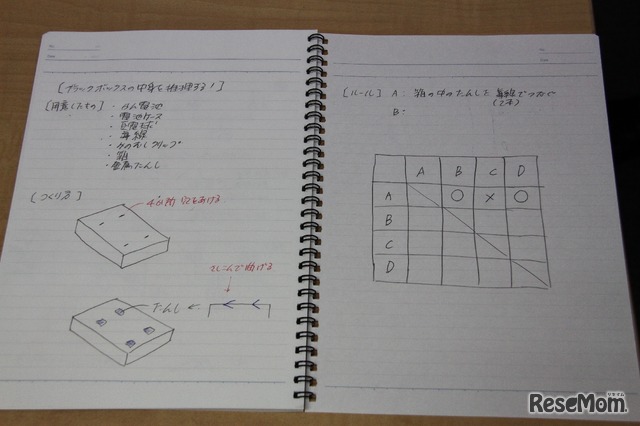 [ブラックボックスの中身を推理する!]
[用意したもの] ・かん電池
・電池ケース
・豆電球
・導線
・わのむしクリップ
・箱
・金属たんし
[つくり方]
4か所 穴をあける
さしこんで曲げる
たんし
[ルール] A: 箱の中のたんしを導線でつなぐ
(2本)
B:
A B C D
A ○ × ○
B
C
D
ReseMom.
リセマム